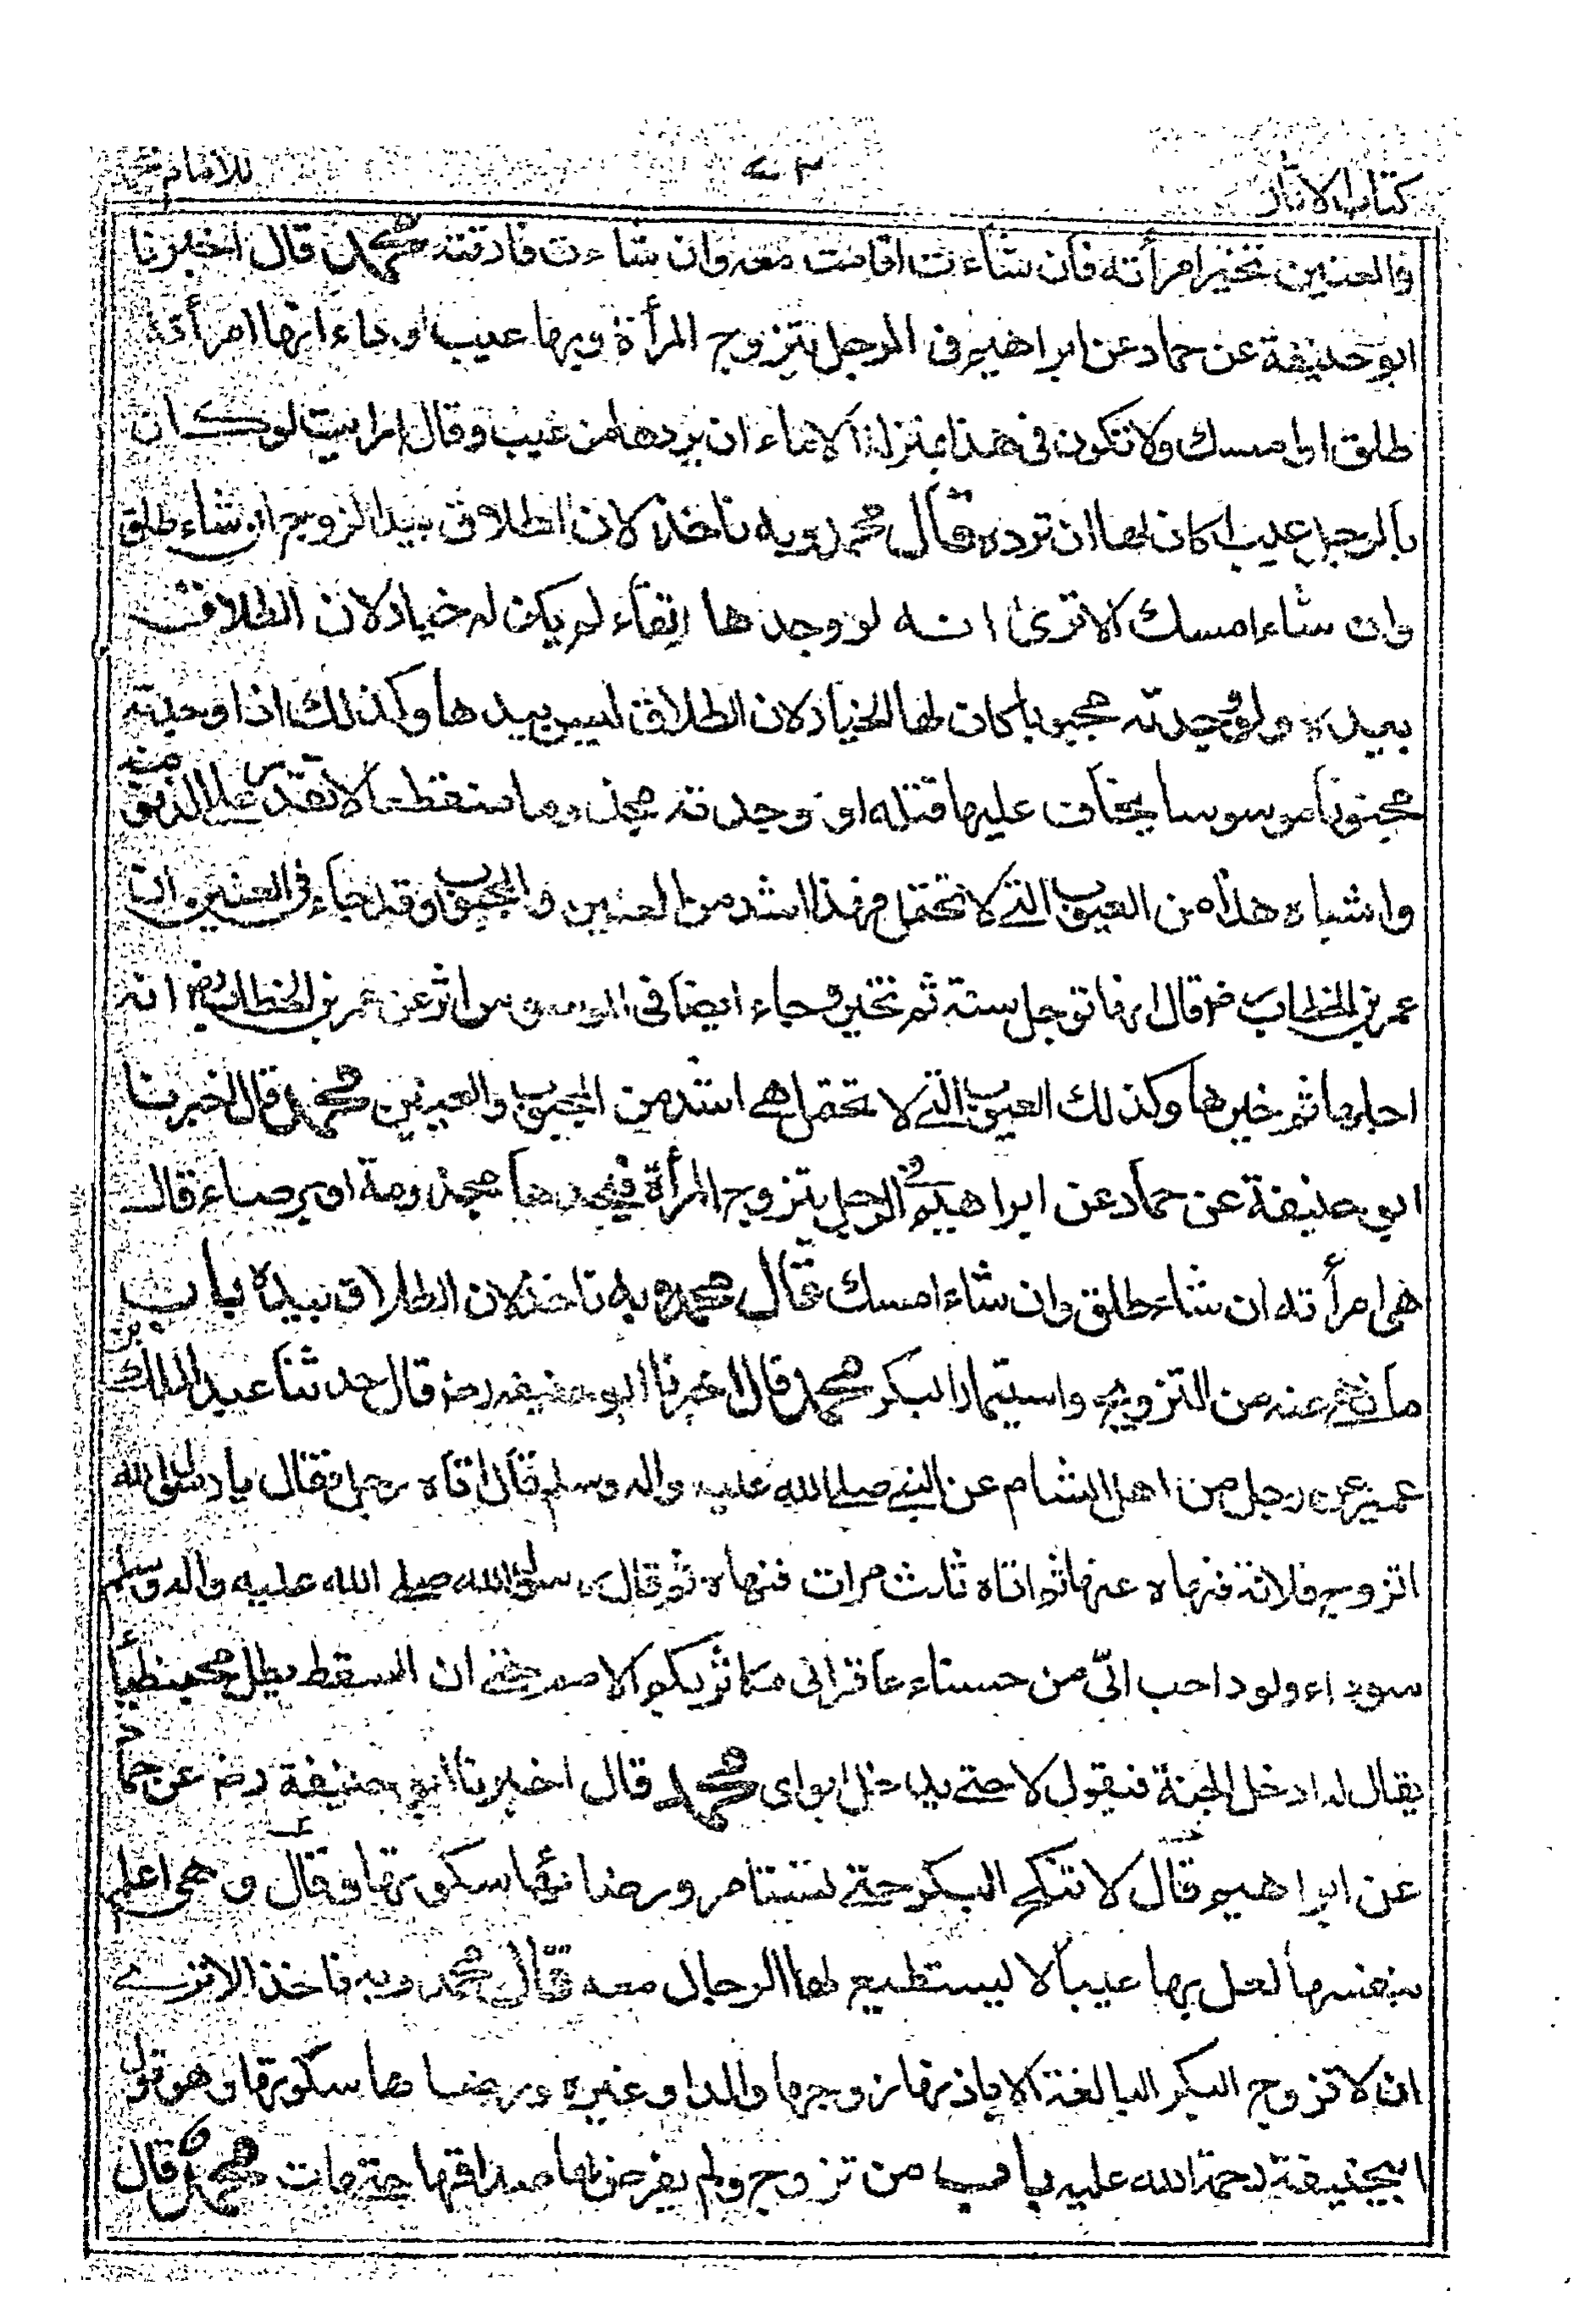 كتاب الاثار ٧٣ للامام محمد
والعنين تخير امرأته فان شاءت اقامت معه وان شاءت فارقته محمد قال اخبرنا
ابو حنيفة عن حماد عن ابراهيم فى الرجل يتزوج المرأة وبها عيب او داء انها امرأته
طلق او امسك ولا تكون فى هذا بمنزلة الاماء ان يردها من عيب وقال ارايت لو كان
بالرجل عيب اكان لها ان ترده قال محمد وبه ناخذ لان الطلاق بيد الزوج ان شاء طلق
وان شاء امسك الا ترى انه لو وجدها رتقاء لم يكن له خيار لان الطلاق
بيده ولو وجدته مجبوبا كان لها الخيار لان الطلاق ليس بيدها وكذلك اذا وجدته
مجنونا موسوسا يخاف عليها قتله او وجدته مجذوما منقطعا لا تقدر على الدنو منه
واشباه هذا من العيوب التى لا تحتمل فهذا اشد من العنين والمجبوب وقد جاء فى العنين ان
عمر بن الخطاب رض قال انها توجل سنة ثم تخير وجاء ايضا فى الموسوس اثر عن عمر بن الخطاب رض انه
اجلها ثم خيرها وكذلك العيوب التى لا تحتمل هى اشد من المجبوب والعنين محمد قال اخبرنا
ابو حنيفة عن حماد عن ابراهيم فى الرجل يتزوج المرأة فيجدها مجذومة او برصاء قال
هى امرأته ان شاء طلق وان شاء امسك قال محمد وبه ناخذ لان الطلاق بيده باب
ما نهى عنه من التزويج واستيمار البكر محمد قال اخبرنا ابو حنيفه رض قال حدثنا عبد الملك بن
عمير عن رجل من اهل الشام عن النبى صلى الله عليه واله وسلم قال اتاه رجل فقال يا رسول الله
اتزوج فلانة فنهاه عنها ثم اتاه ثلث مرات فنهاه ثم قال رسول الله صلى الله عليه واله وسلم
سوداء ولود احب الىّ من حسناء عاقر انى مكاثر بكم الامم حتى ان السقط يظل محبنطيا
يقال له ادخل الجنة فيقول لا حتى يدخل ابواى محمد قال اخبرنا ابو حنيفة رض عن حماد
عن ابراهيم قال لا تنكح البكر حتى تستامر ورضائها سكوتها وقال وهى اعلم
بنفسها لعل بها عيبا لا يستطيع لها الرجال معه قال محمد وبه ناخذ الا ترى
ان لا تزوج البكر البالغة الا باذنها زوجها والد او غيره ورضاها سكوتها وهو قول
ابيحنيفة رحمة الله عليه باب من تزوج ولم يفرض لها صداقها حتى مات محمد قال